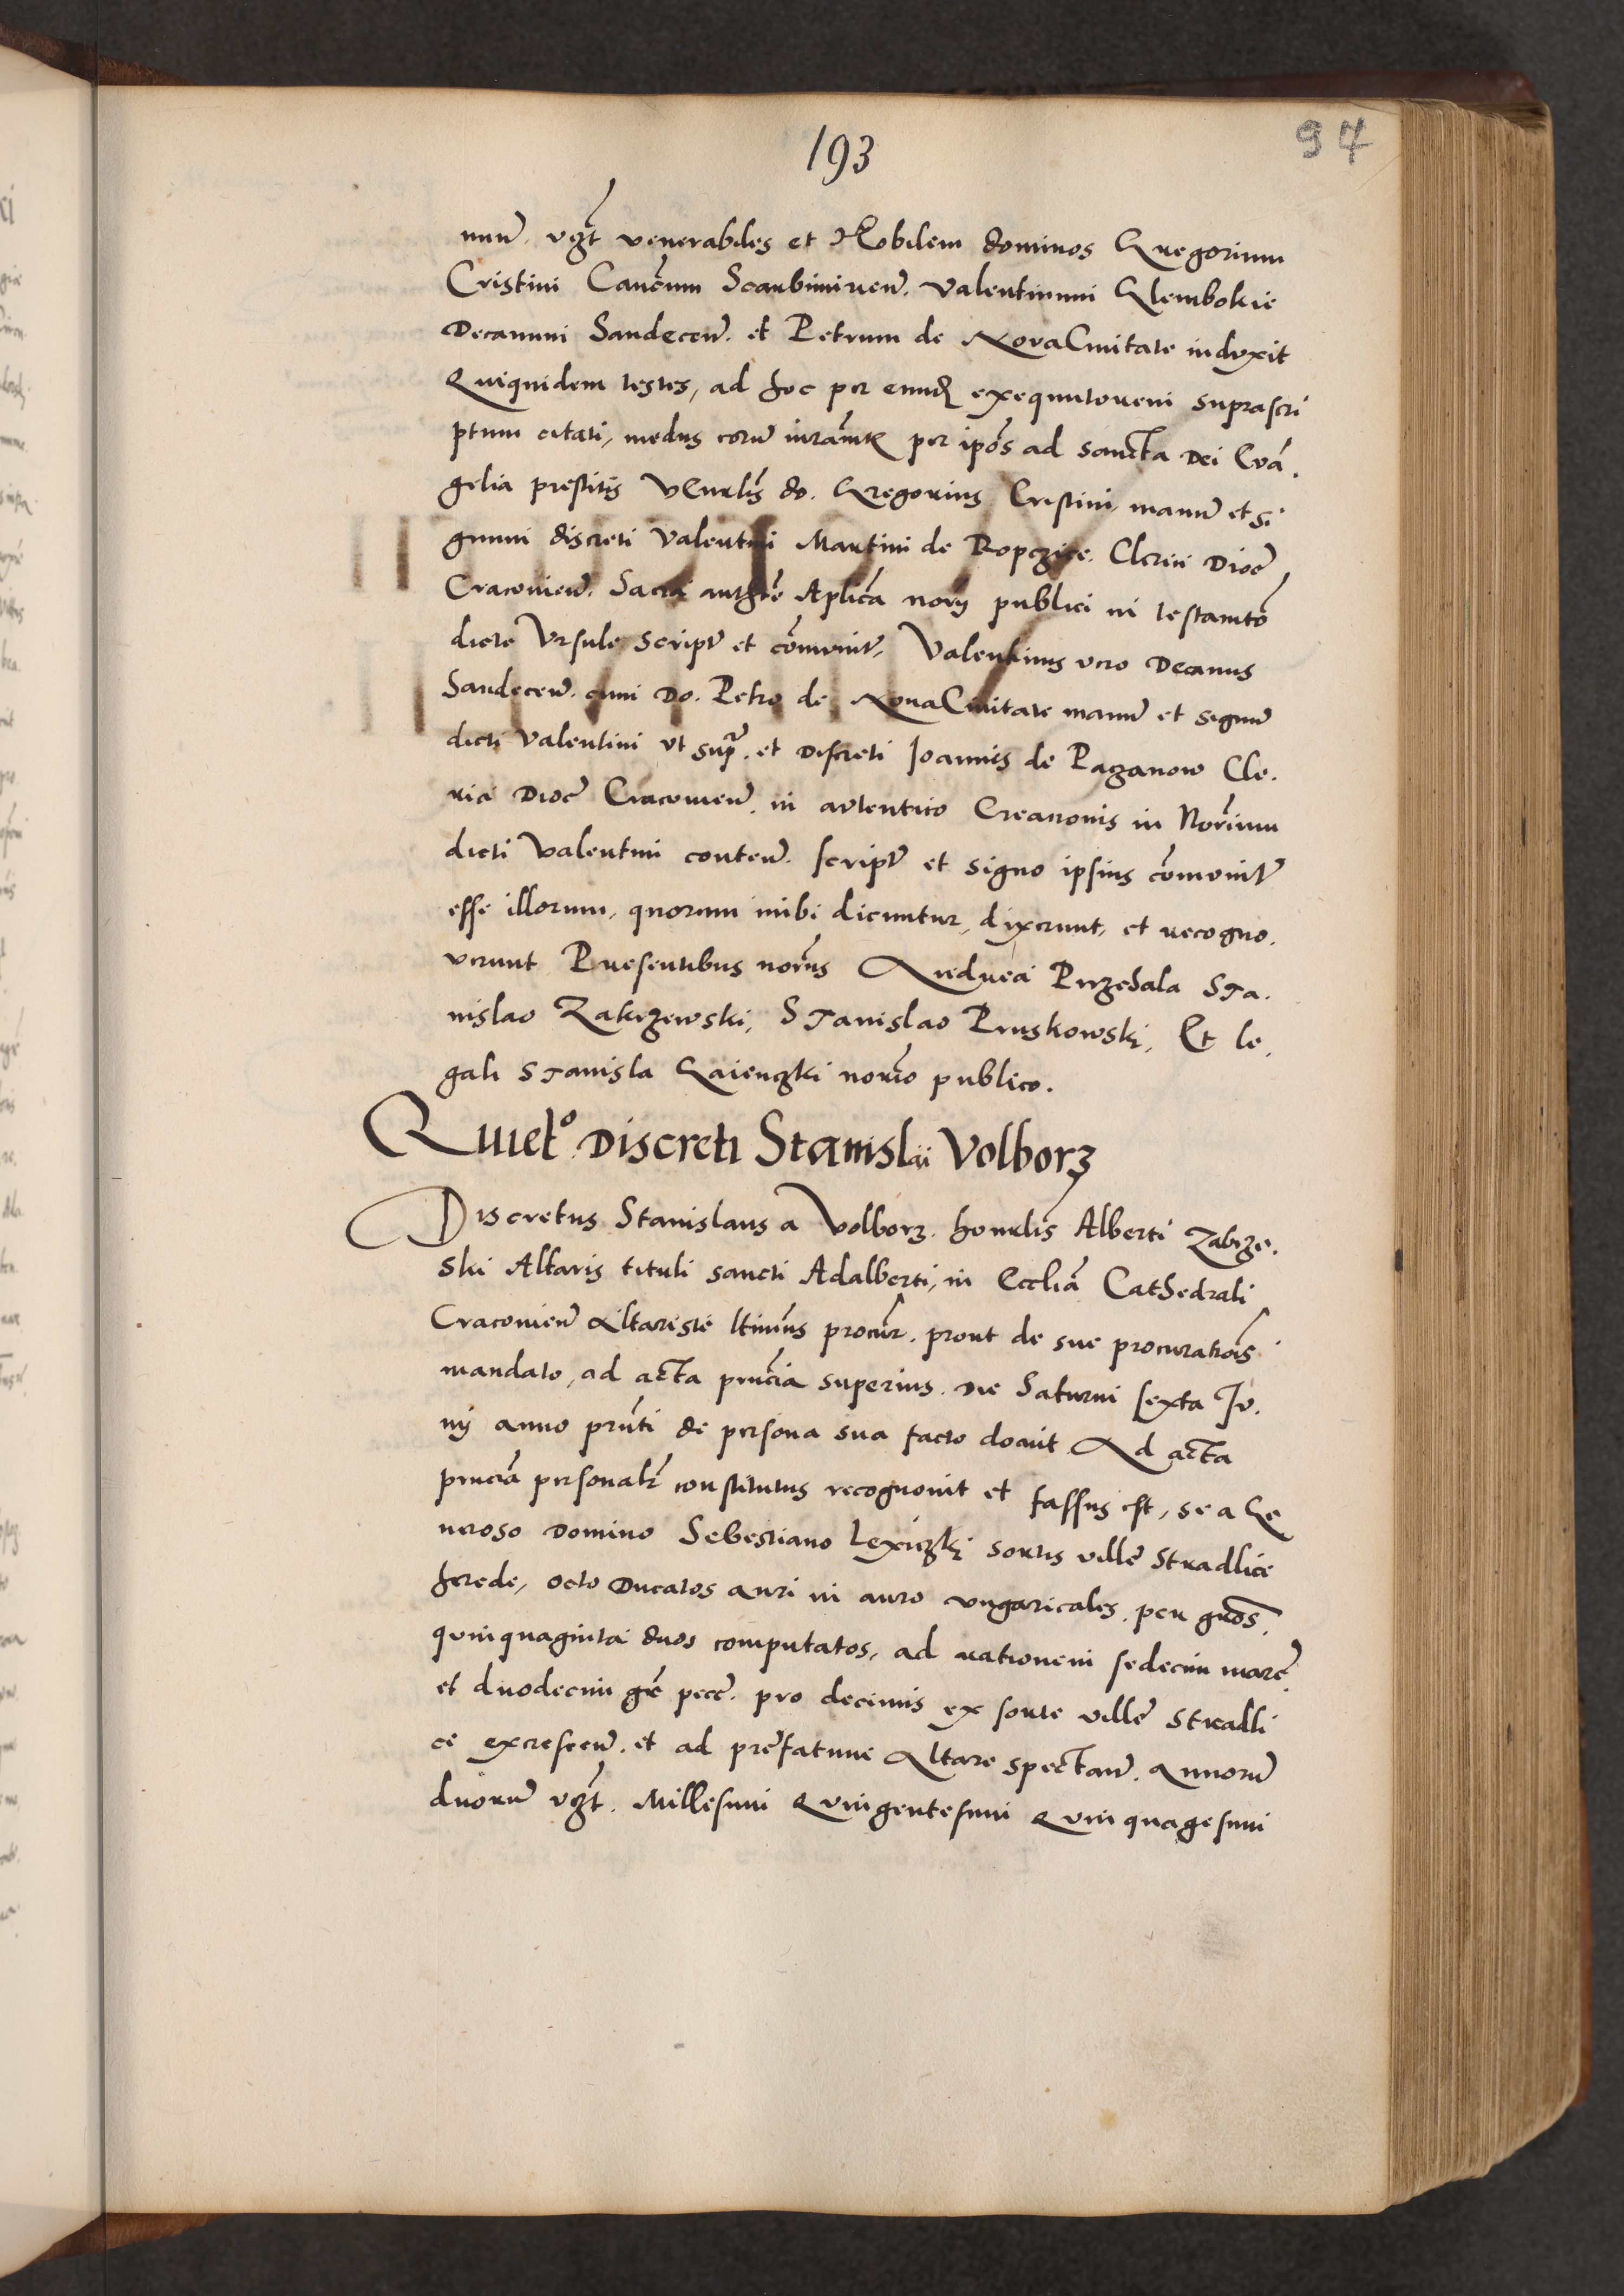 193
97
num̃. vꝫt venerabiles et Nobilem dominos Gregorium
Cristini Canc̃um Scarbimirien̄. Valentinum Glembokie
Decanum Sandecen̄. et Petrum de NovaCiuitate induxit
Quiquidem testes, ad hoc per eund̄ exequutorem suprascri
ptum citati, medys eorum̄ iuram̃t per ip̃os ad sancta Dei Eua.
gelia prestitis Do. Gregorius Cristini, manum̄ et si
gnum discreti Valentini Martini de Ropczice. Clerici Dioc̄
Cracouien̄. Sacra auth̃te Aplic̃a nory publici in testam̃to
dicte Vrsule script̄ et com̃unit̄, Valentinus vero Decanus
Sandecen̄. cum Do. Petro de NouaCiuitate manum̄ et signum̄
dicti Valentini vt sup̃. et Discreti Joannis de Paczanow Cle.
rici Dioc̄ Cracouien̄. in autentico Creationis in Nor̃ium
dicti Valentini conten̄. script̄ et signo ipsius com̃unit̄
esse illorum, quorum inibi dicuntur, dixerunt, et recogno.
uerunt Presentibus nor̃ys Andrea Przedala Sta.
nislao Zakrzewski, Stanislao Pruskowski, Et le.
gali Stanisla Gaienczki nor̃io publico.
Quiet̊. Discreti Stanislai Volborz
Discretus Stanislaus a Volborz. hon̄rlis Alberti Zabrze.
ski Altaris tituli sancti Adalberti, in Eccliã Cathedrali
Cracouien̄ Altariste ltim̃us procur̄. prout de sue procurationis
mandato, ad acta prñcia superius. Die Saturni sexta Ju.
nij anno prñti de persona sua facto docuit Ad acta
prñcia personalr̄ constitutus recognouit et fassus est, se a Ge
neroso Domino Sebestiano Lexiczki sortis ville Stradlice
herede, octo Ducatos auri in auro vngaricales. per gr̃os.
quinquaginta duos computatos, ad rationem sedecim marc̄.
et duodecim gr̃ pecc̄. pro decimis ex sorte ville Stradli
ce excrescen̄. et ad prefatum Altare spectan̄. Annorum̄
duorum̄ vꝫt. Millesimi Quingentesimi Quinquagesimi